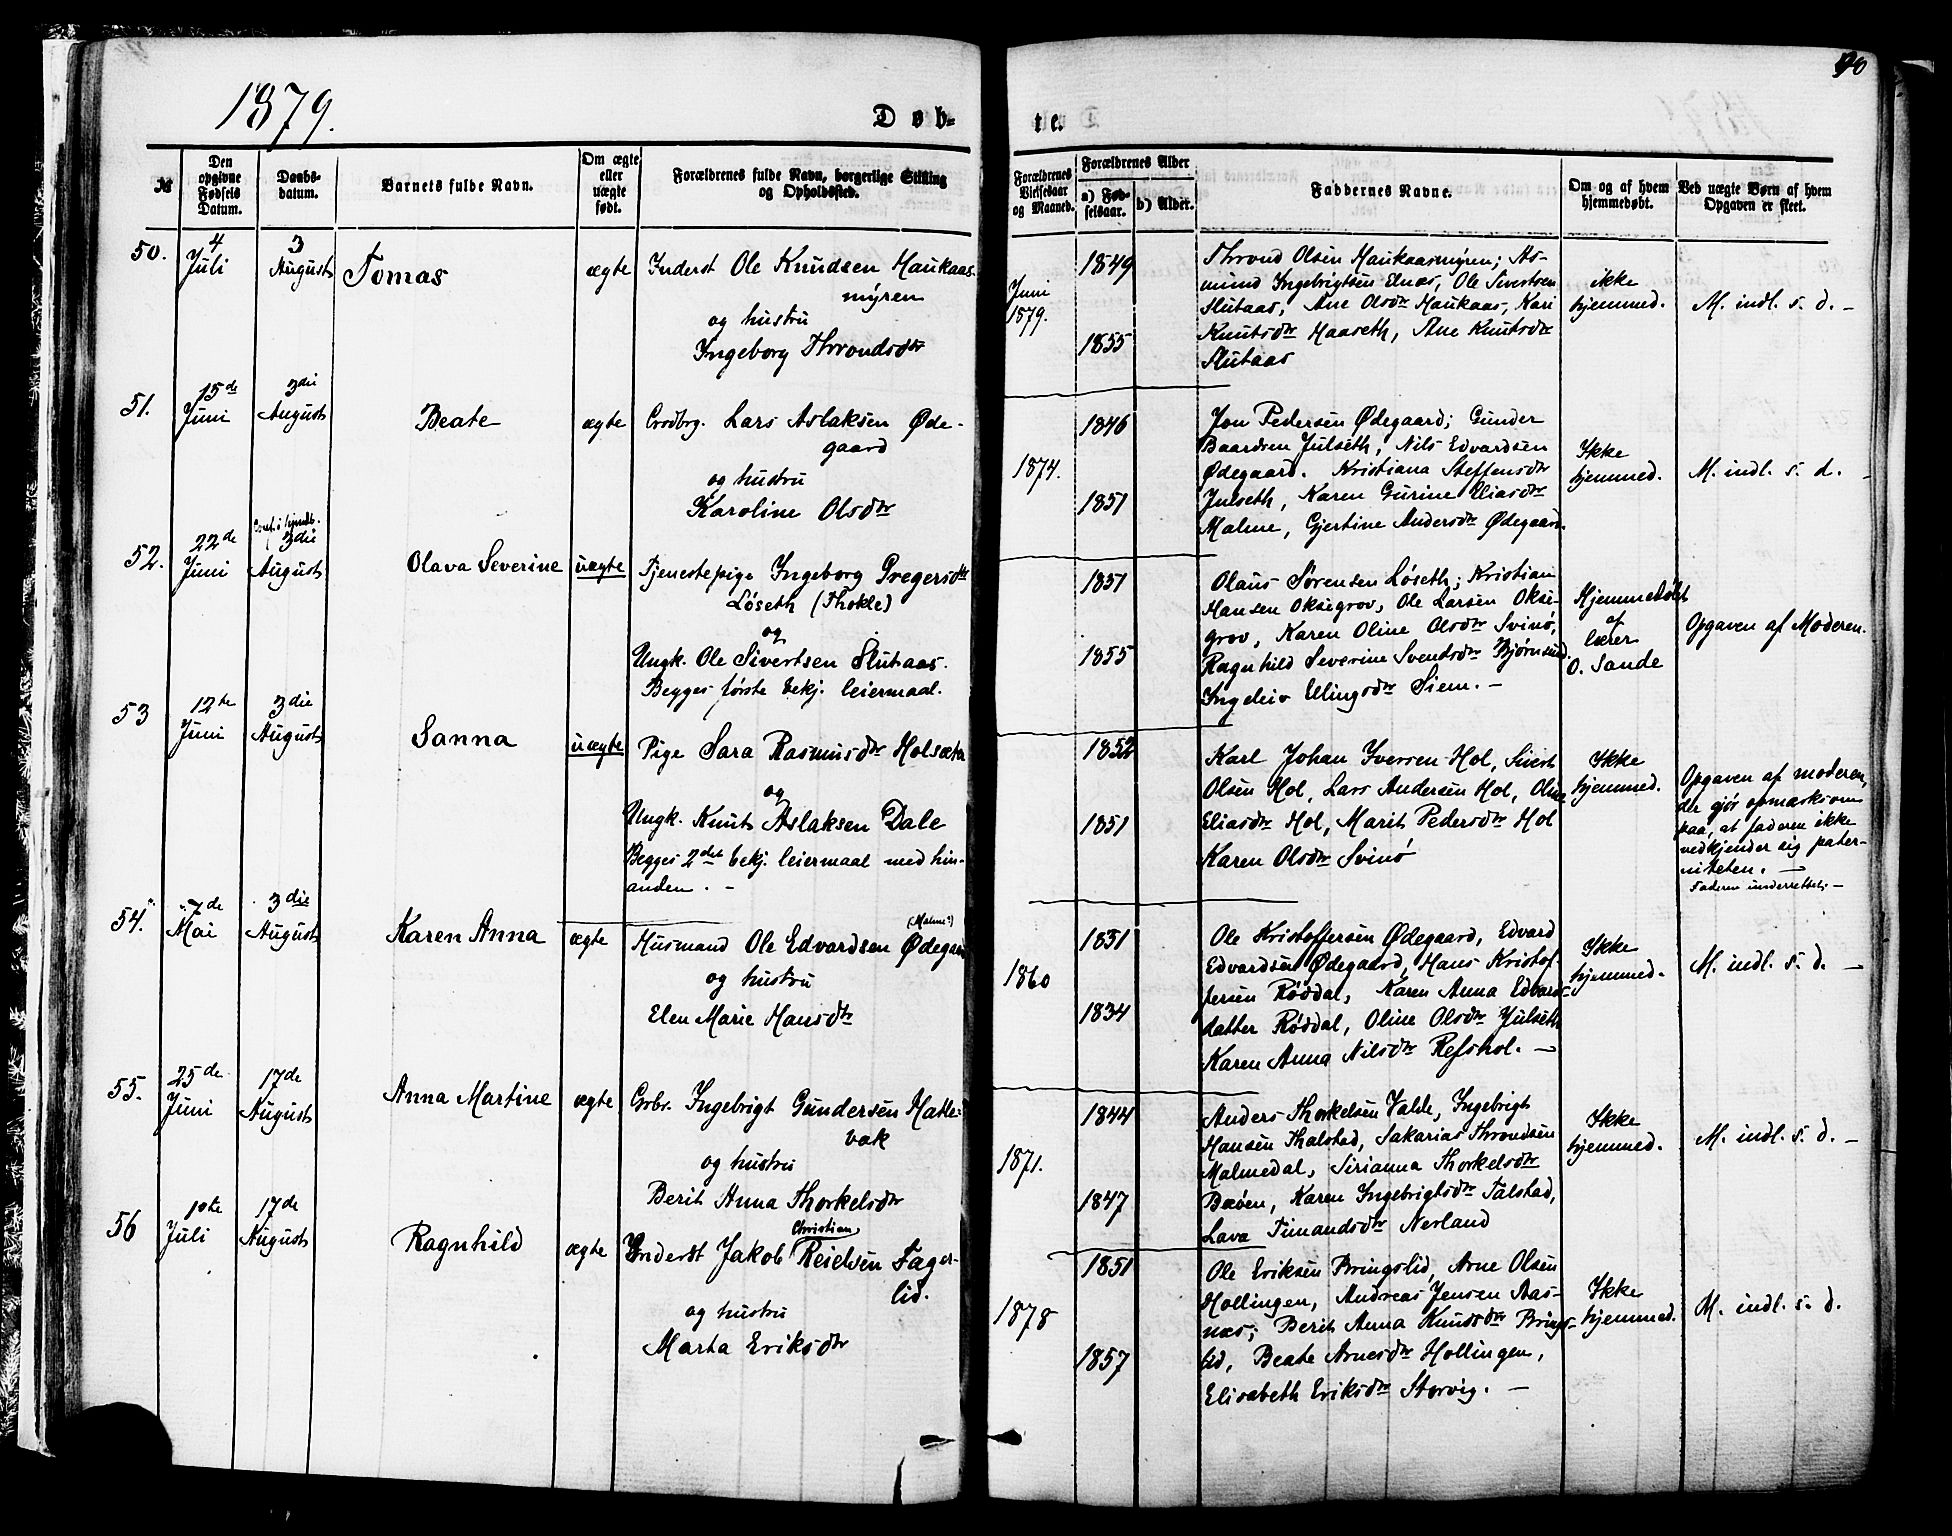 1879.
Døb-
te.
90
№
Den opgivne Fødsels Datum.
Daabs-datum.
Barnets fulde Navn.
Om ægte eller uægte født.
Forældrenes fulde Navn, borgerlige Stilling og Opholdssted.
Forældrenes Vielsesaar og Maaned.
Forældrenes Alder
a) Fød-selsaar.
b) Alder.
Faddernes Navne.
Om og af hvem hjemmedøbt.
Ved uægte Børn af hvem Opgaven er skeet.
50.
4 Juli
3 August
Tomas
ægte
Inderst Ole Knudsen Haukaas-
myren
og hustru
Ingeborg Throndsdtr
Juni 1879.
1849
1855
Thrond Olsen Haukaasmyren; As-
mund Ingebrigtsen Elnæs, Ole Sivertsen
Slutaas, Ane Olsdtr Haukaas, Kari
Knutsdtr Haaseth, Ane Knutsdtr
Slutaas
ikke
hjemmed.
M. indl. s. d. -
51.
15de Juni
3die August
Beate
ægte
Lars Aslaksen Øde-
gaard
og hustru
Karoline Olsdtr
1874.
1846
1851
Jon Pedersen Ødegaard; Gunder
Baardsen Julseth, Nils Edvardsen
Ødegaard. Kristiana Steffensdtr
Julseth, Karen Gurine Eliasdtr
Malme, Gjertine Andersdtr Ødegaard.
Ikke
hjemmed.
M. indl. s. d. -
52.
22de Juni
3die August
Olava Severine
uægte
Tjenestepige Ingeborg Gregersdtr
Løseth (Thokle)
og
Ungk. Ole Sivertsen Slutaas.
Begges første bekj. leiermaal.
1851
1855
Olaus Sørensen Løseth; Kristian
Hansen Oksegrov, Ole Larsen Okse-
grov, Karen Oline Olsdtr Svinø,
Ragnhild Severine Svendsdtr Bjørnsund
Ingeleiv Ellingsdtr Siem. -
Hjemmedøbt
af
lærer
O. Sande
Opgaven af Moderen.
53
12te Juni
3die August
Sanna
uægte
Pige Sara Rasmusdtr Holsæter
og
Ungk. Knut Aslaksen Dale
Begges 2det bekj. leiermaal med hin-
anden. -
1852
1851
Karl Johan Iversen Hol, Sivert
Olsen Hol, Lars Andersen Hol, Oline
Eliasdtr Hol, Marit Pedersdtr Hol
Karen Olsdtr Svinø
Ikke
hjemmed.
Opgaven af moderen,
der gjør opmærksom
paa, at faderen ikke
vedkjender sig pater-
niteten. -
Faderen underrettet. -
54.
7de Mai
3die August
Karen Anna
ægte
(Malme?)
Husmand Ole Edvardsen Ødegaard
og hustru
Elen Marie Hansdtr
1860
1831
1834
Ole Kristoffersen Ødegaard, Edvard
Edvardsen Ødegaard, Hans Kristof-
fersen Røddal, Karen Anna Edvards-
datter Røddal, Oline Olsdtr Julseth
Karen Anna Nilsdtr Refshol. -
Ikke
hjemmed.
M. indl. s. d. -
55.
25de Juni
17de August
Anna Martine
ægte
Grbr. Ingebrigt Gundersen Hatle-
vak
og hustru
Berit Anna Thorkelsdtr
1871.
1844
1847
Anders Thorkelsen Valde, Ingebrigt
Hansen Thalstad, Sakarias Throndsen
Malmedal, Sirianna Thorkelsdtr
Bæven, Karen Ingebrigtsdtr Talstad,
Lava Timandsdtr Nerland
Ikke
hjemmed.
M. indl. s. d. -
56
10te Juli
17de August
Ragnhild
ægte
Christian
Inderst Jakob Reielsen Fager-
lid.
og hustru
Marta Eriksdtr
1878
1851
1857
Ole Eriksen Bringslid, Arne Olsen
Hollingen, Andreas Jensen Aas-
næs; Berit Anna Knudsdtr Brings-
lid, Beate Arnesdtr Hollingen,
Elisabeth Eriksdtr Storvig. -
Ikke
hjemmed.
M. indl. s. d.